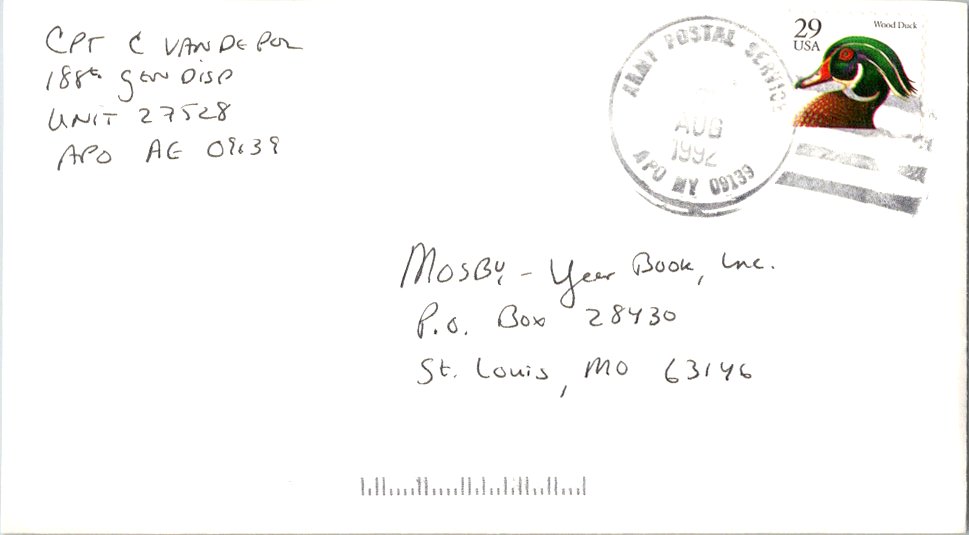 CPT C VANDEPOL
188th GEN DISP
UNIT 27528
APO AE 09139
ARMY POSTAL SERVICE
AUG
1992
APO NY 09139
29
USA
Wood Duck
Mosby - Year Book, Inc.
P.O. Box 28430
St. Louis, MO 63146